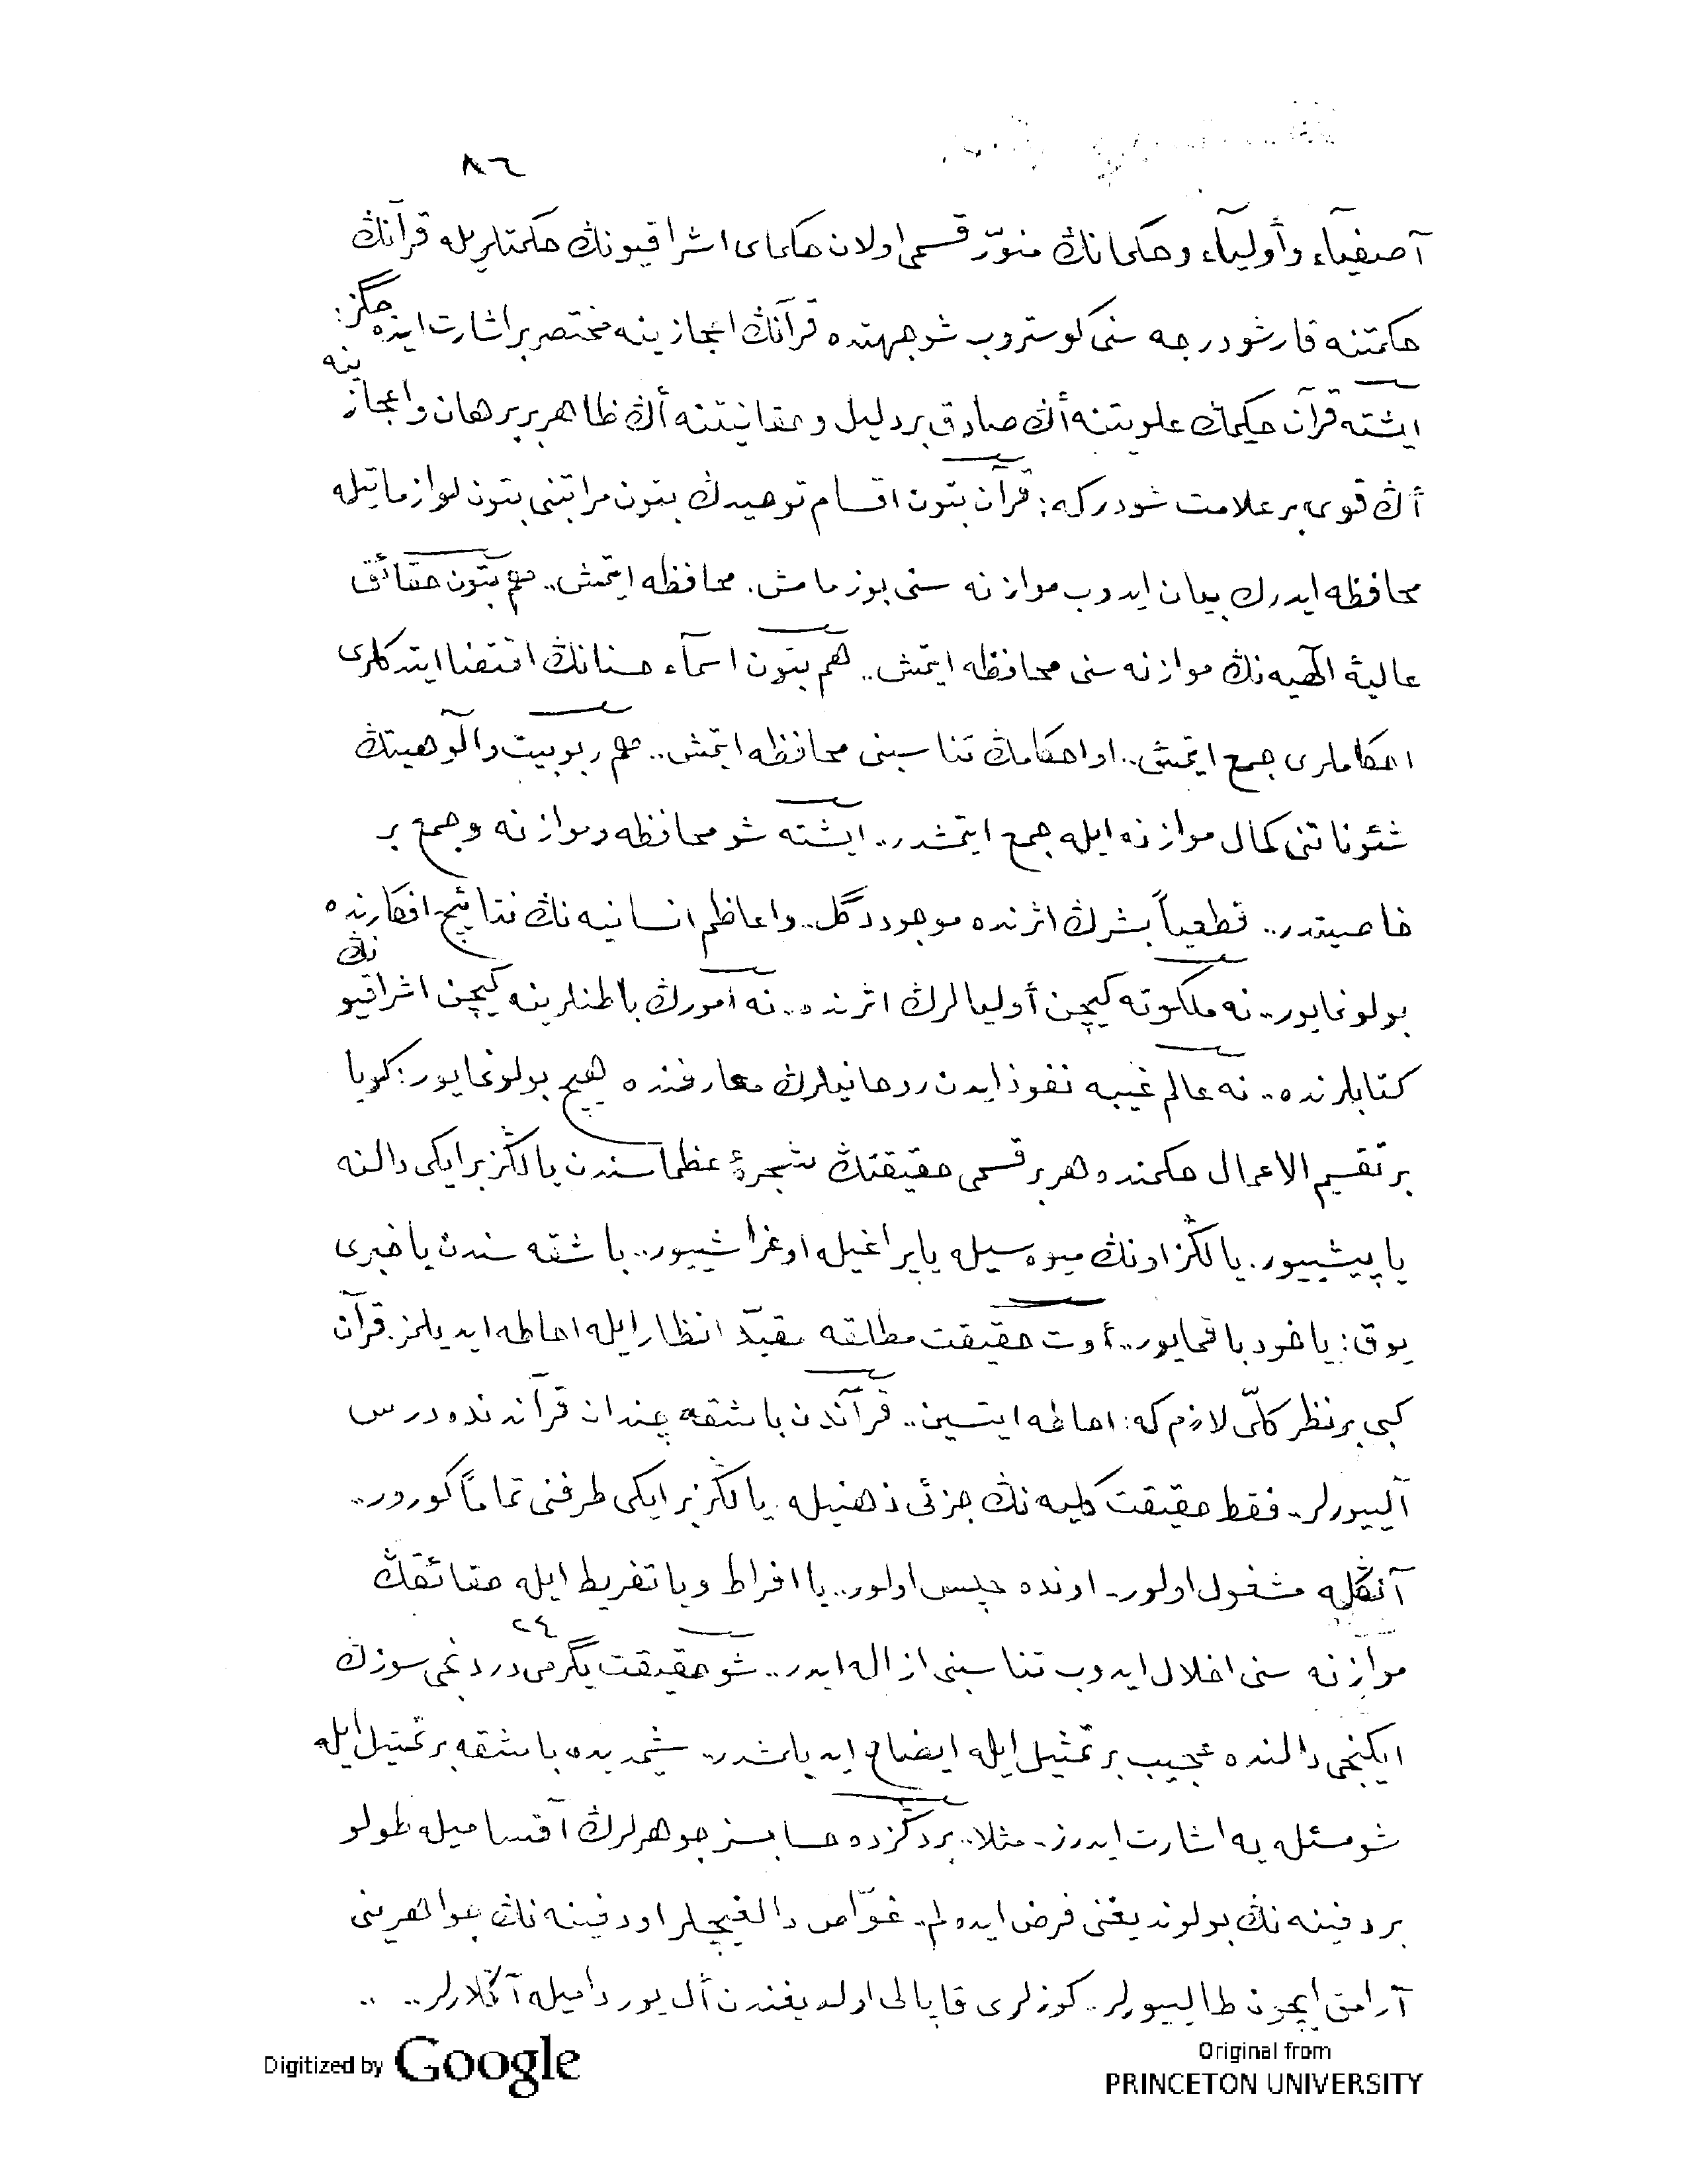 ٨٦
آصفیآء وأولیآء وحكمانڭ منوّر قسمی اولان حكمای اشراقیونڭ حكمتلریله قرآنڭ
حكمتنه قارشو درجه سنی كوستروب شو جهتده قرآنڭ اعجازینه مختصر بر اشارت ایده جگز:
ایشته قرآن حكیمڭ علویتنه أڭ صادق بر دلیل و حقانیتنه أڭ ظاهر بر برهان و اعجازینه
أڭ قوی بر علامت شودر كه: قرآن بتون اقسام توحیدڭ بتون مراتبنی بتون لوازماتیله
محافظه ایدرك بیان ایدوب موازنه سنی بوزمامش. محافظه ایتمش.. هم بتون حقائق
عالیهٔ الٓهیه نڭ موازنه سنی محافظه ایتمش.. هم بتون اسمآء حسنانڭ اقتضا ایتدكلری
احكاملری جمع ایتمش.. او احكامڭ تناسبنی محافظه ایتمش.. هم ربوبیت و الٓوهیتڭ
شئوناتنی كمال موازنه ایله جمع ایتمشدر.. ایشته شو محافظه و موازنه و جمع بر
خاصیتدر.. قطعیاً بشرڭ اثرنده موجود دگل.. و اعاظم انسانیه نڭ نتائج افكارنده
بولونمایور.. نه ملكوته كیچن أولیالرڭ اثرنده.. نه اُمورڭ باطنلرینه كیچن اشراقیونڭ
كتابلرنده.. نه عالم غیبه نفوذ ایدن روحانیلرڭ معارفنده هیچ بولونمایور: كویا
بر تقسیم الاعمال حكمنده هر بر قسمی حقیقتڭ شجرهٔ عظماسندن یالڭز بر ایكی دالنه
یاپیشییور. یالڭز اونڭ میوه سیله یاپراغیله اوغراشییور.. باشقه سندن یا خبری
یوق: یاخود باقمایور.. أوت حقیقت مطلقه مقیدّ انظار ایله احاطه ایدیلمز. قرآن
كبی بر نظر كلّی لازم كه: احاطه ایتسین.. قرآندن باشقه چندان قرآندنده درس
آلییورلر.. فقط حقیقت كلیه نڭ جزئی ذهنیله یالڭز بر ایكی طرفنی تماماً كورور..
آنڭله مشغول اولور.. اونده حپس اولور.. یا افراط ویا تفریط ایله حقائقڭ
موازنه سنی اخلال ایدوب تناسبنی ازاله ایدر.. شو حقیقت یگرمی دردنجی ٢٤ سوزڭ
ایكنجی دالنده عجیب بر تمثیل ایله ایضاح ایدیلمشدر.. شیمدیده باشقه بر تمثیل ایله
شو مسئله یه اشارت ایدرز.. مثلا.. بر دڭزده حسابسز جوهرلرڭ آقسامیله طولو
بر دفینه نڭ بولوندیغنی فرض ایده لم.. غوّاص دالغیچلر او دفینه نڭ جواهرینی
آرامق ایچون طالییورلر.. كوزلری قاپالی اولدیغندن أل یوردامیله آڭلارلر.. ..
Digitized by Google
Original from
PRINCETON UNIVERSITY